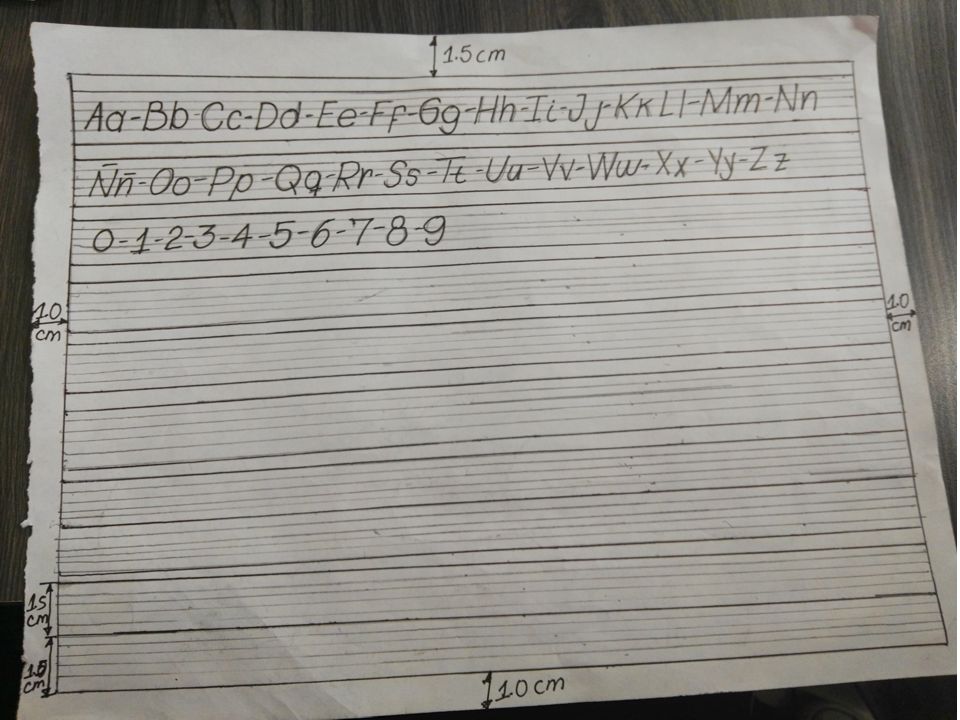 1.5 cm
Aa-Bb-Cc-Dd-Ee-Ff-Gg-Hh-Ii-Jj-Kk-Ll-Mm-Nn
Ññ-Oo-Pp-Qq-Rr-Ss-Tt-Uu-Vv-Ww-Xx-Yy-Zz
0-1-2-3-4-5-6-7-8-9
1.0
cm
1.0
cm
1.5
cm
1.5
cm
1.0 cm